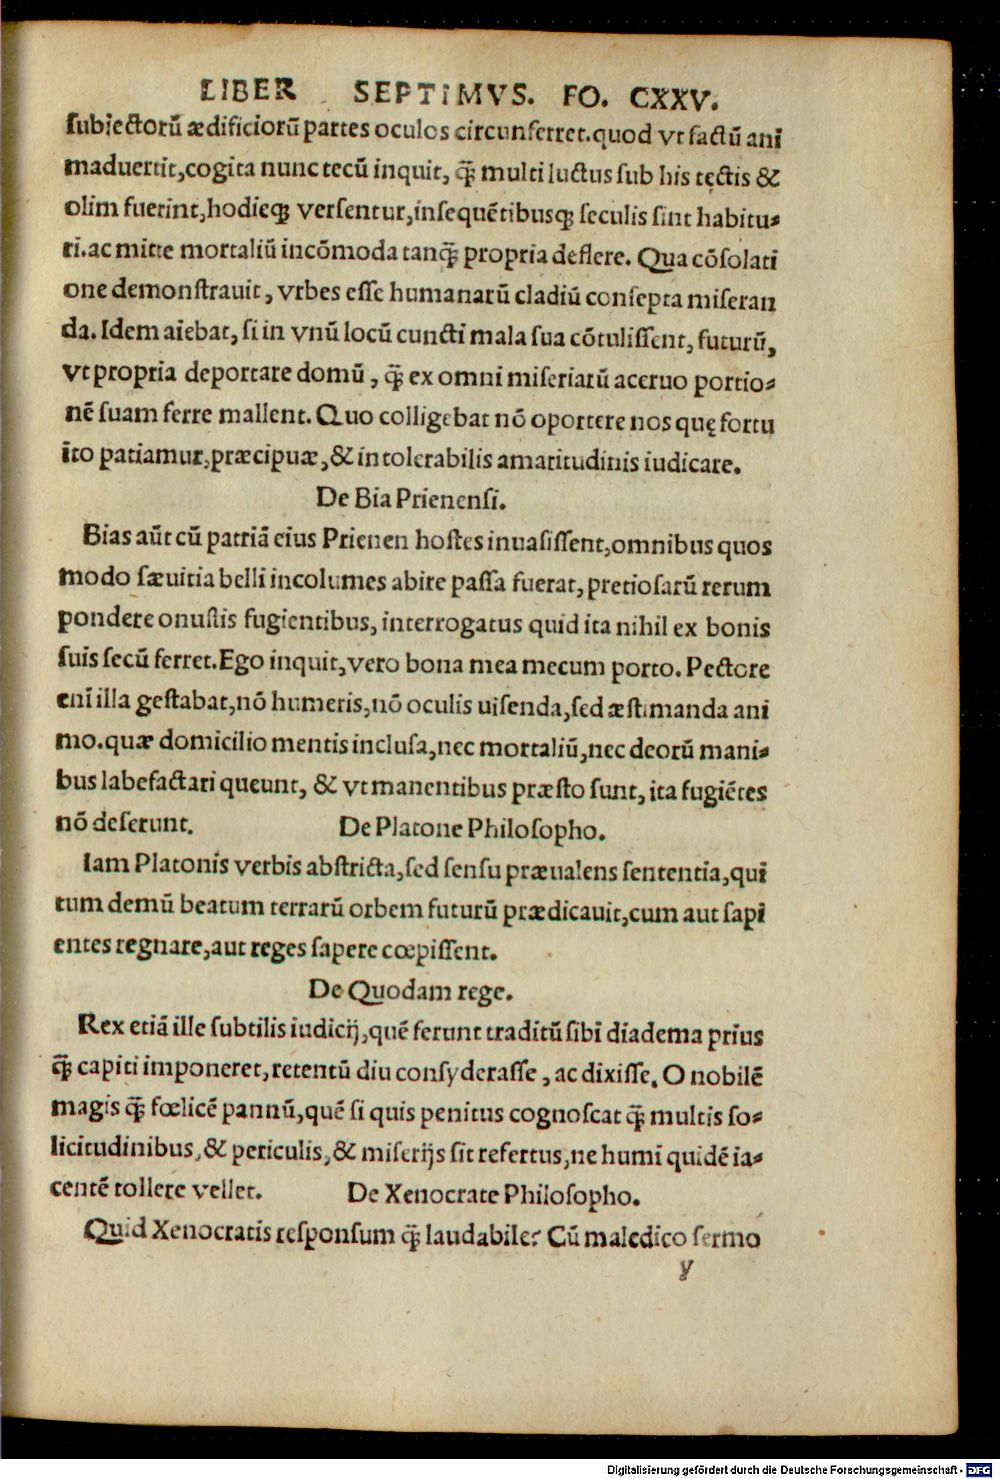 LIBER SEPTIMVS. FO. CXXV.
subiectorũ ædificiorũ partes oculos circunferret.quod vt factũ ani
maduertit,cogita nunc tecũ inquit, q̃ multi luctus sub his tectis &
olim fuerint,hodieq; versentur,insequẽtibusq; seculis sint habitu-
ri.ac mitte mortaliũ incõmoda tanq̃ propria deflere. Qua cõsolati
one demonstrauit, vrbes esse humanarũ cladiũ consepta miseran
da. Idem aiebat, si in vnũ locũ cuncti mala sua cõtulissent, futurũ,
vt propria deportare domũ, q̃ ex omni miseriarũ aceruo portio-
nẽ suam ferre mallent. Quo colligebat nõ oportere nos quę fortu
ĩto patiamur,præcipuæ,& intolerabilis amaritudinis iudicare.
De Bia Prienensi.
Bias aũt cũ patriã eius Prienen hostes inuasissent,omnibus quos
modo sæuitia belli incolumes abire passa fuerat, pretiosarũ rerum
pondere onustis fugientibus, interrogatus quid ita nihil ex bonis
suis secũ ferret.Ego inquit,vero bona mea mecum porto. Pectore
enĩ illa gestabat,nõ humeris,nõ oculis uisenda,sed æstimanda ani
mo.quæ domicilio mentis inclusa,nec mortaliũ,nec deorũ mani-
bus labefactari queunt, & vt manentibus præsto sunt, ita fugiẽtes
nõ deserunt. De Platone Philosopho.
Iam Platonis verbis abstricta,sed sensu præualens sententia,qui
tum demũ beatum terrarũ orbem futurũ prædicauit,cum aut sapi
entes regnare,aut reges sapere cœpissent.
De Quodam rege.
Rex etiã ille subtilis iudicij,quẽ ferunt traditũ sibi diadema prius
q̃ capiti imponeret, retentũ diu consyderasse, ac dixisse. O nobilẽ
magis q̃ fœlicẽ pannũ,quẽ si quis penitus cognoscat q̃ multis so-
licitudinibus,& periculis,& miserijs sit refertus,ne humi quidẽ ia-
centẽ tollere vellet. De Xenocrate Philosopho.
Quid Xenocratis responsum q̃ laudabile? Cũ maledico sermo
y
Digitalisierung gefördert durch die Deutsche Forschungsgemeinschaft - DFG